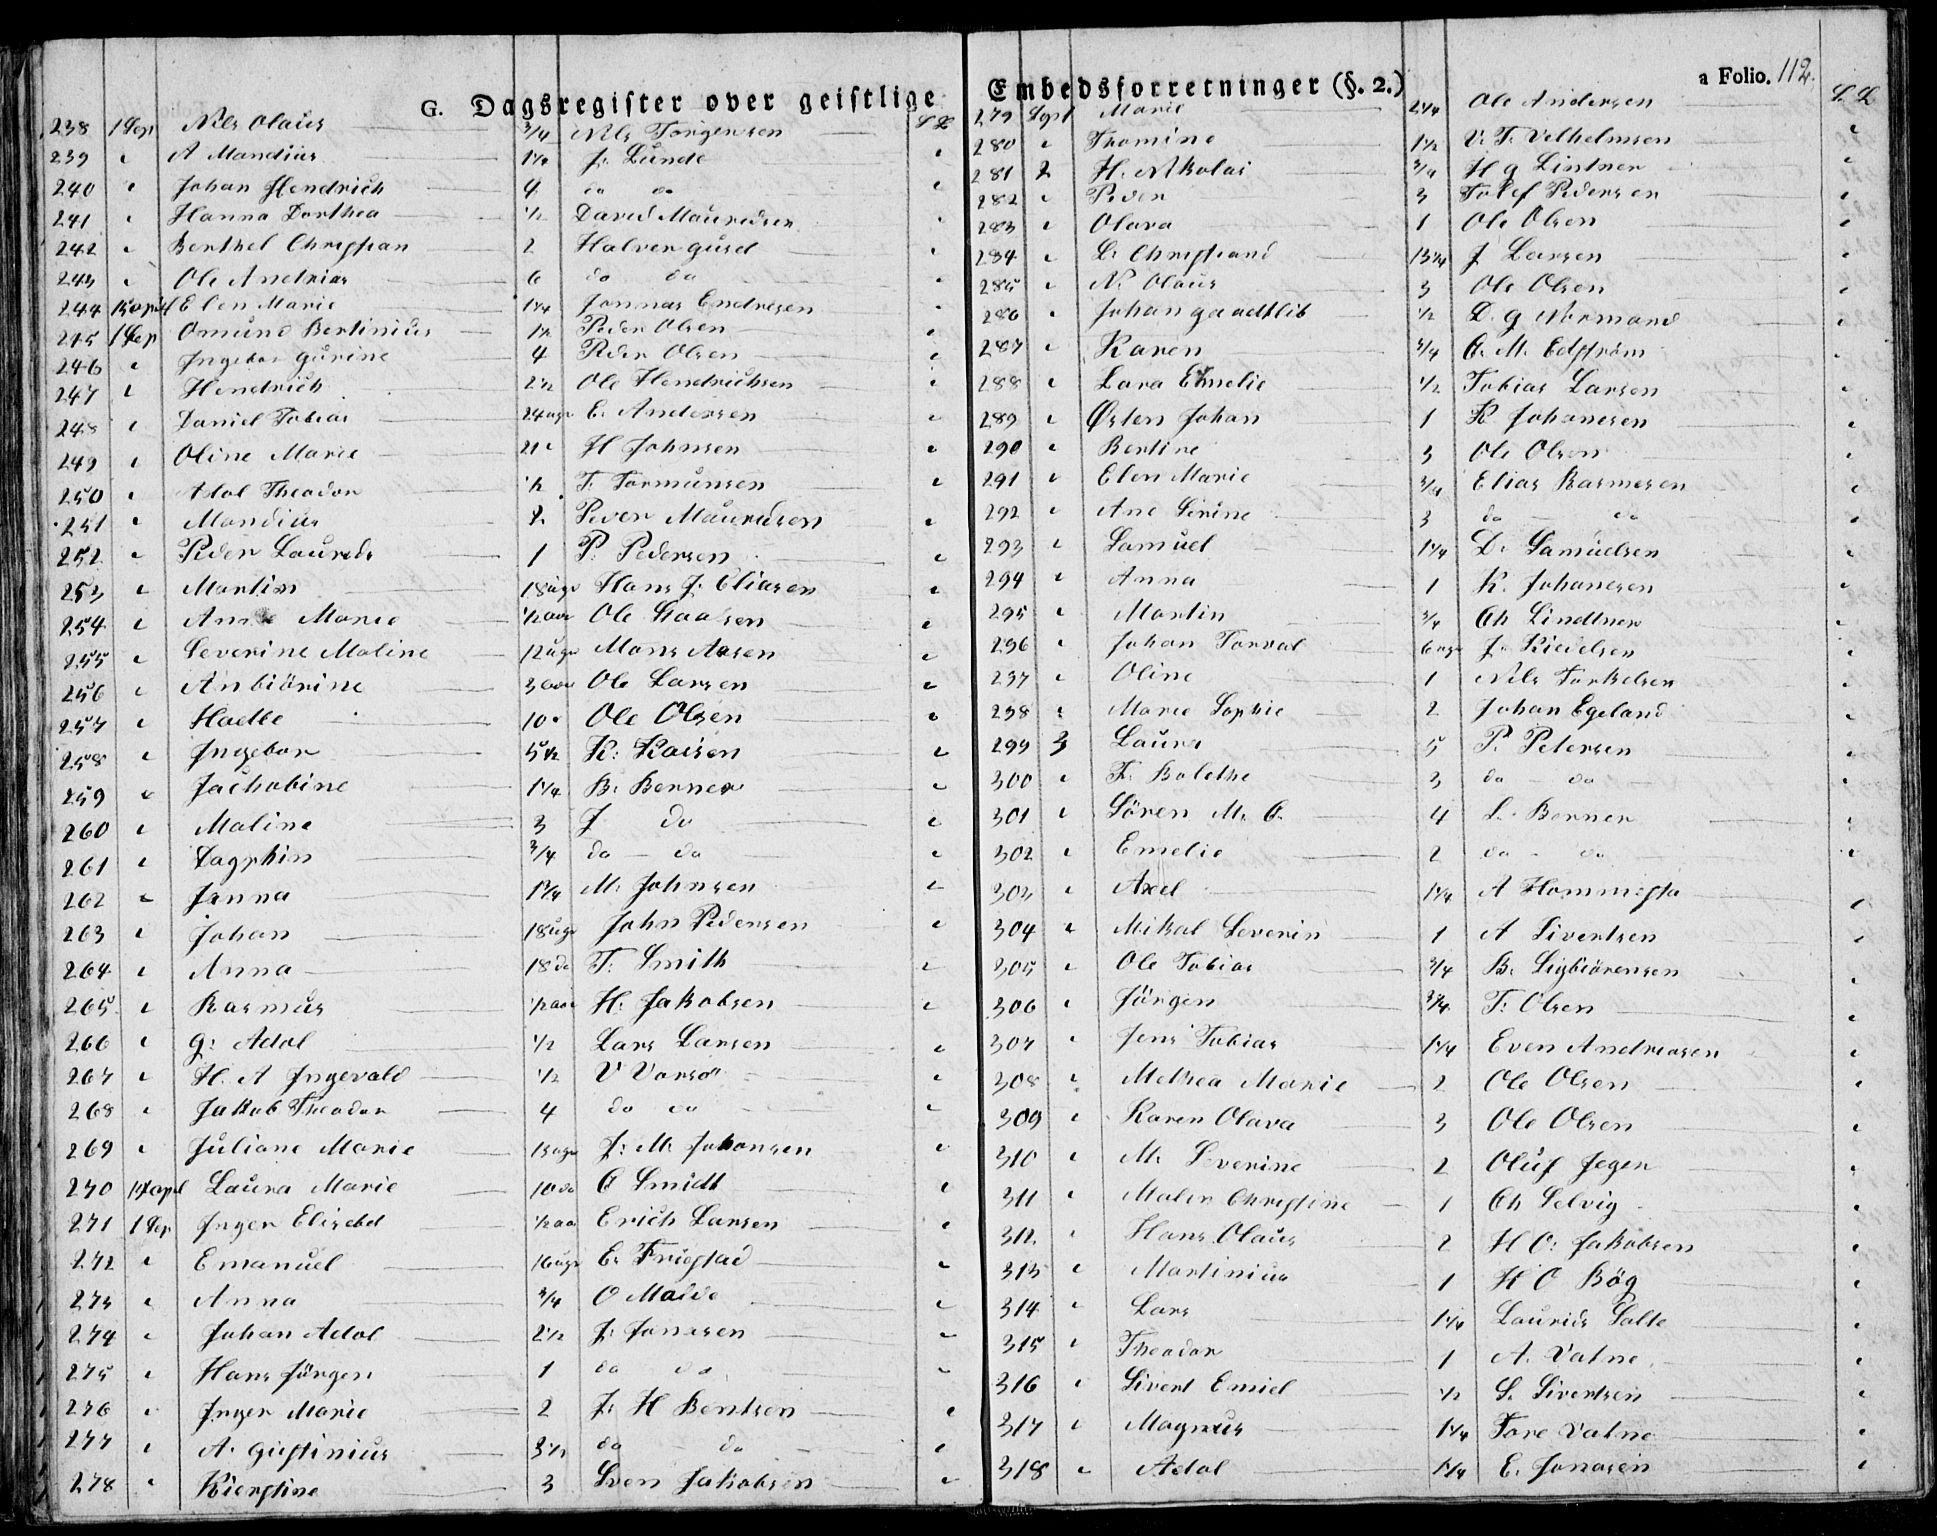 G. Dagsregister over geistlige
238 1 Sep Nils Olaus 3/4 Nils Torgersen
239 " A Mandius 1 1/4 J. Lunde "
240 " Johan Hendrich 4 do do "
241 " Hanna Dorthea 1/2 David Mauridsen "
242 " Berthel Christian 2 Halver gused "
243 " Ole Andrias 6 do do "
244 Elen Marie 1 1/4 Jonnas Endresen "
245 1 Sep Omund Bertinius 1 1/2 Peder Olsen "
246 " Ingebor gurine 4 Peder Olsen "
247 " Hendrich 2 1/2 Ole Hendrichsen "
248 " Daniel Tobias 24 uger E. Andersen "
249 " Oline Marie 21 " H Johnsen "
250 " Adol Theodor 1/2 T. Tormunsen "
251 " Mandius 2 Peder Mauridsen "
252 " Peder Laurids 1 P. Pedersen "
253 " Martin 18 uger Hans J. Eliasen "
254 " Ane Marie 1/2 aar Ole "
255 " Severine Maline 12 uger Mons Aasen "
256 " Anbiörine 3 aar Ole Larsen "
257 " Haelle 10 " Ole Olsen "
258 " Ingebor 5 1/2 K: Kaisen "
259 " Jachobine 1 1/4 B. Berner "
260 " Maline 3 J do "
261 " Dagphin 3/4 do – do "
262 " Janna 1 3/4 M. Johnsen "
263 " Johan 18 uger John Pedersen "
264 " Anna 18 do T. Smith "
265 " Rasmus 1/2 aar H. Jakobsen "
266 " g: Adol 1/2 Lars Larsen "
267 " H. A Ingevald 1/2 V Vorsö "
268 " Jakob Theodor 4 do do "
269 " Juliane Marie 13 uger J: M. Johansen "
270 17 apl Laura Marie 10 do C Smidt "
271 1 Sep Inger Elisebet 1/2 aar Erich Larsen "
272 " Emanuel 16 uger E. Friestad "
273 " Anna 3/4 O Malde "
274 " Johan Adol 2 1/2 J: Jonasen "
275 " Hans Jörgen 1 do do "
276 " Inger Marie 2 J: H Bentsen "
277 " A. gustinius 3 1/2 do – do "
278 " Kierstine 3 Sven Jakobsen "
Embedsforretninger (§. 2.)
a Folio. 112.
279 Sept Marie 2 1/4 Ole Andersen
280 " Thomine 1 1/2 V. T. Velhelmsen "
281 2 H. Nikolai 3/4 H g Lintner "
282 " Peder 3 Tolef Pedersen "
283 " Olava 1 Ole Olsen "
284 " L. Christiand 13 3/4 J Larsen "
285 " N. Olaus 3 Ole Olsen "
286 " Johan gaadtlib 1/2 D. g Normand "
287 " Karen 3/4 C. M. Edstrøm "
288 " Lava Emelie 1/2 Tobias Larsen "
289 " Østen Johan 1 K Johanesen "
290 " Bertine 3 Ole Olsen "
291 " Elen Marie 3/4 Elias Rasmesen "
292 " Ane Serine 3 do do "
293 " Samuel 1 1/4 D. Samuelsen "
294 " Anna 1 K. Johanesen "
295 " Martin 3/4 Ch Lindtner "
296 " Johan Torval 6 uger J. Kiedelsen "
297 " Oline 1 Nils Torkelsen "
298 " Marie Sophie 2 Johan Egeland "
299 3 Laura 5 P. Petersen "
300 " T. Bolethe 3 do – do "
301 " Sören M. C. 4 L. Berner "
302 " Emelie 2 do – do "
303 " Axel 1 1/4 A Hommesta "
304 " Mikal Severin 1 A Sivertsen "
305 " Ole Tobias 3/4 B. Sigbiörensen "
306 " Jörgen 3/4 T: Olsen "
307 " Jens Tobias 1 1/4 Even Andreasen "
308 " Methea Marie 2 Ole Olsen "
309 " Karen Olava 3 Ole Olsen "
310 " M. Severine 2 Oluf Jeger "
311 " Malen Christine 1 Ch Selvig "
312 " Hans Olaus 2 H C: Jakobsen "
313 " Martinius 1 H C Bög "
314 " Lars 1 1/4 Laurids Salte "
315 " Theodor 1 A. Vatne "
316 " Sivert Emiel 1/2 S. Sivertsen "
317 " Magnus 1 1/4 Tore Vatne "
318 " Adol 1 1/4 E. Jonasen "